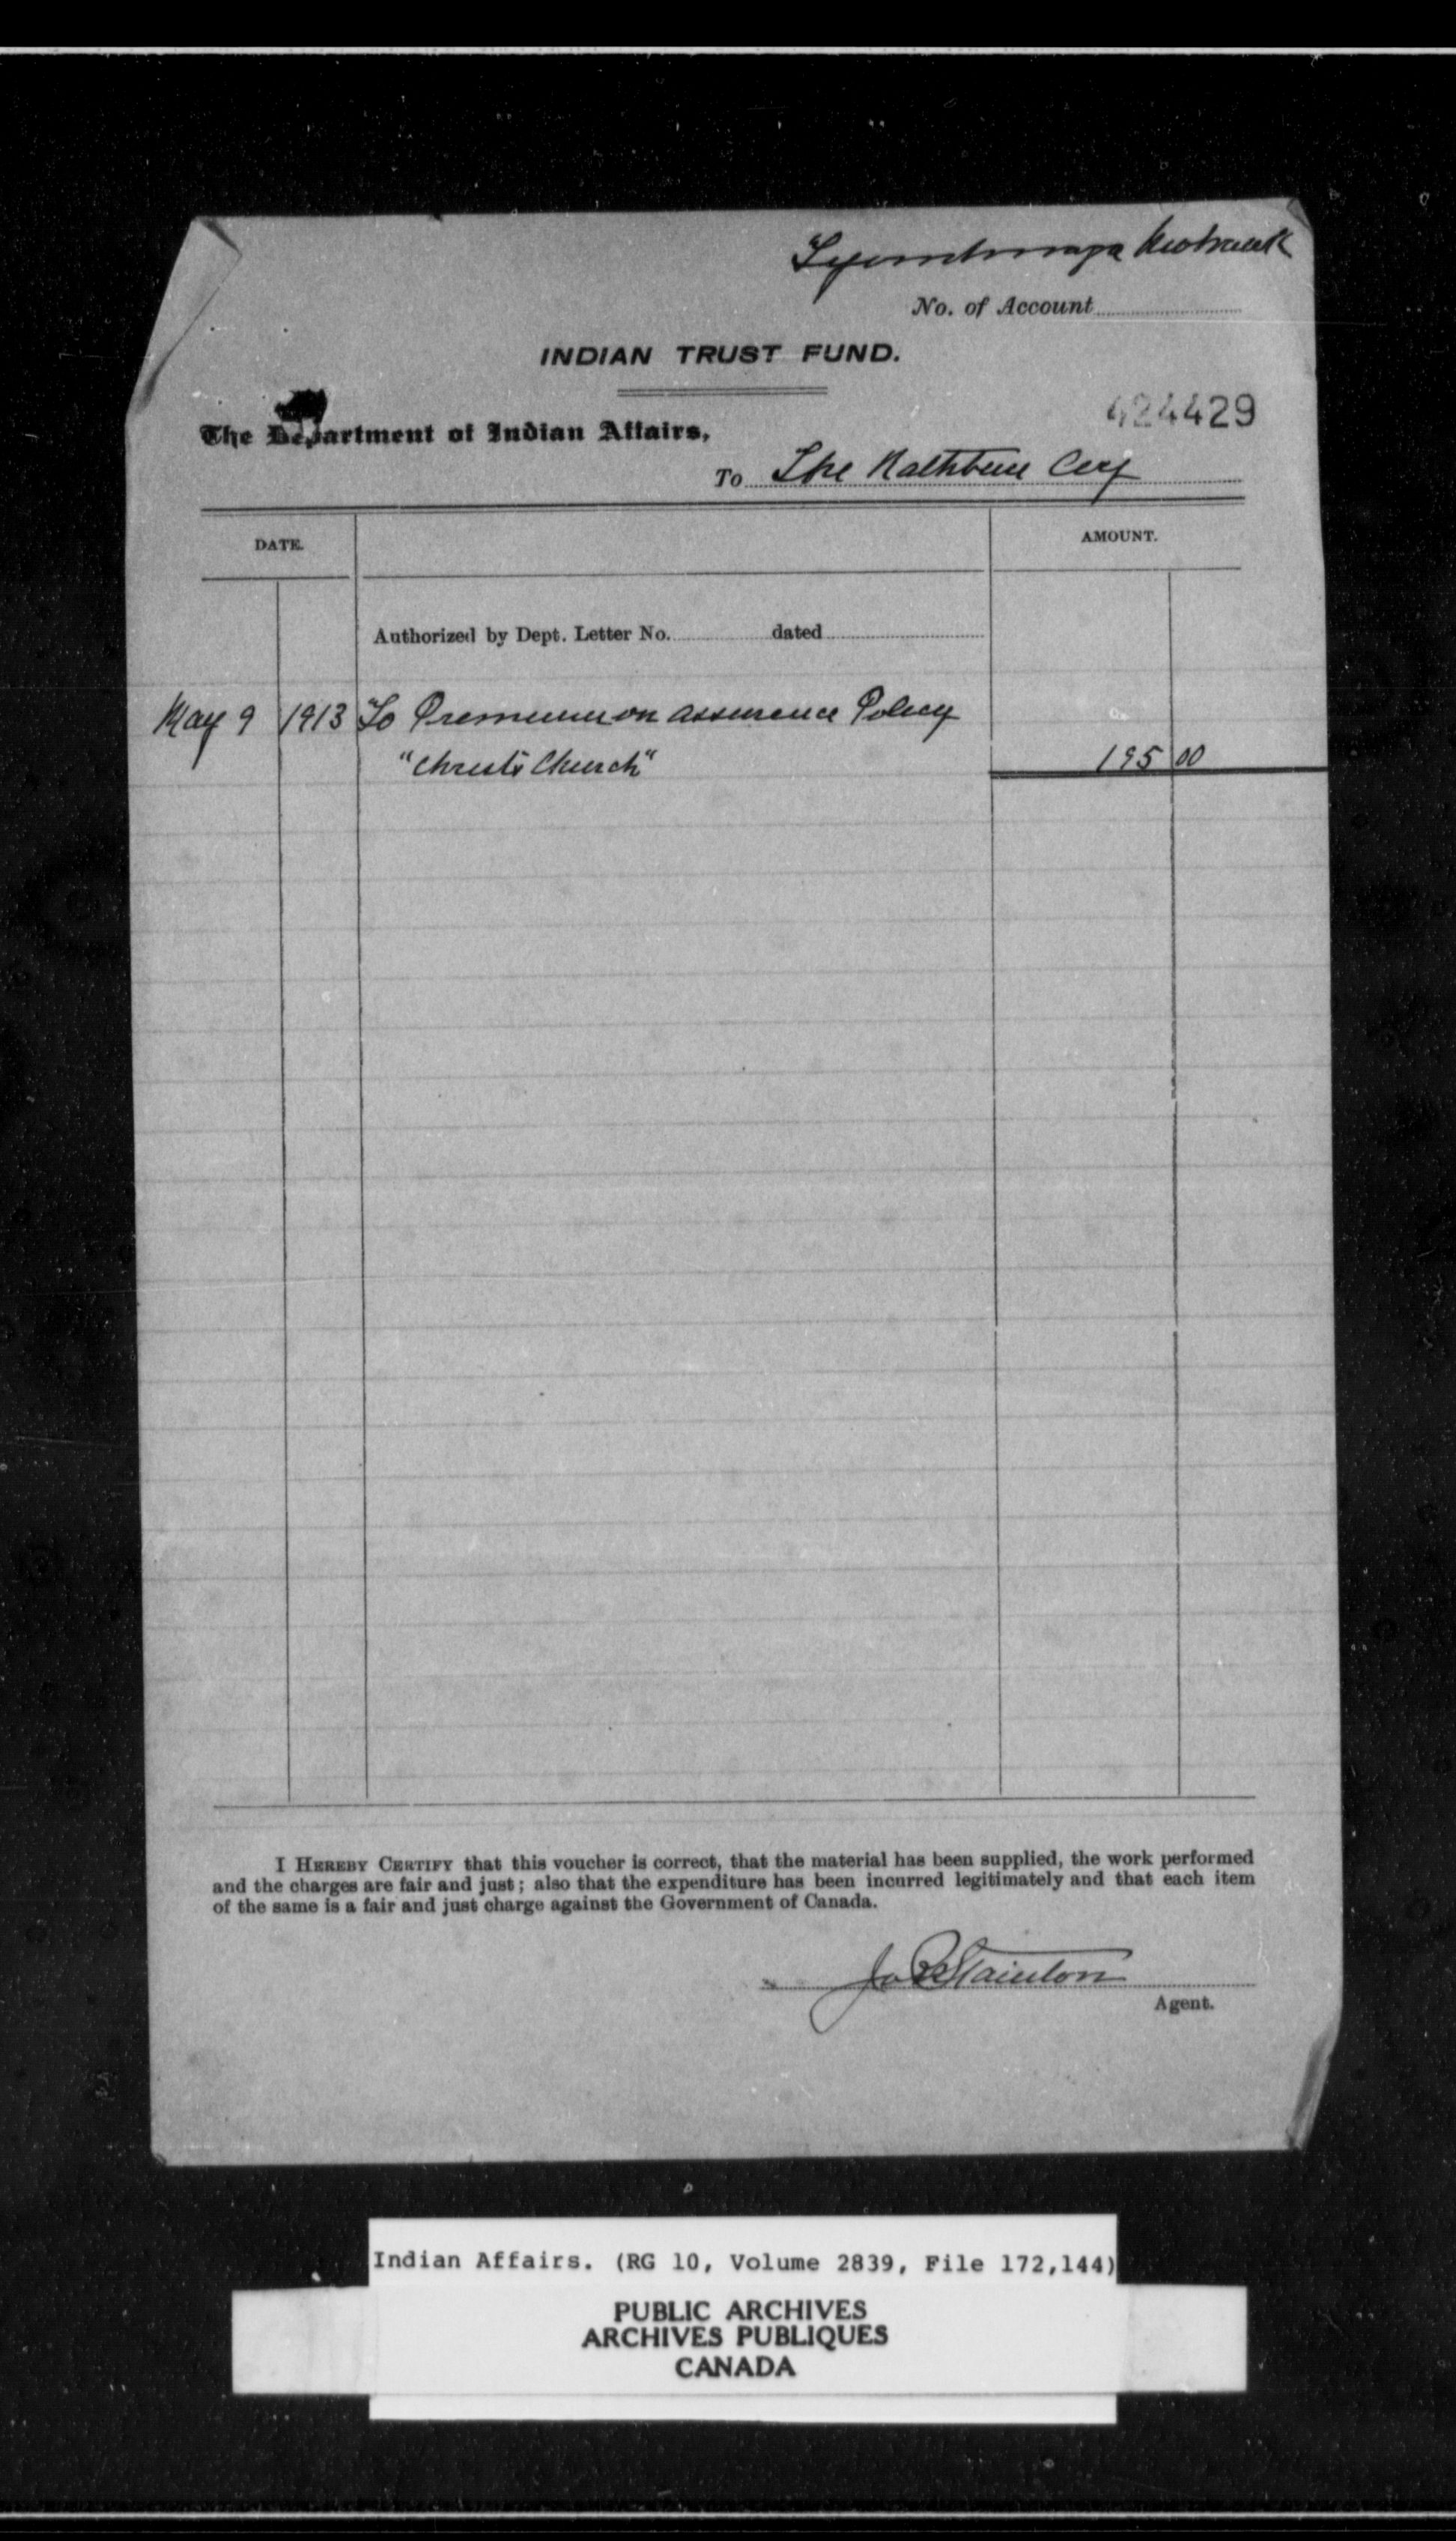 Tyendinaga Mohawk
No. of Account
INDIAN TRUST FUND.
424429
The Department of Indian Affairs,
To The Rathbun Coy
DATE.
AMOUNT.
Authorized by Dept. Letter No. dated
May 9 1913 To Premium on assurance Policy
"Christ's Church" 195 00
I HEREBY CERTIFY that this voucher is correct, that the material has been supplied, the work performed
and the charges are fair and just; also that the expenditure has been incurred legitimately and that each item
of the same is a fair and just charge against the Government of Canada.
Stainton
Agent.
Indian Affairs. (RG 10, Volume 2839, File 172,144)
PUBLIC ARCHIVES
ARCHIVES PUBLIQUES
CANADA